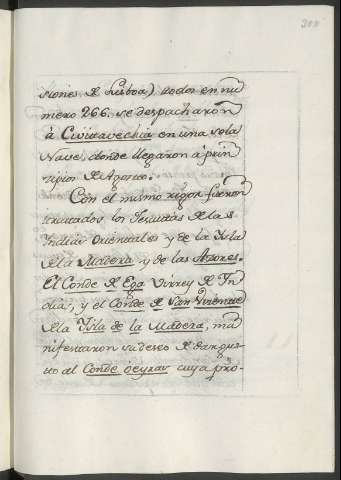 siones de Lisboa) todos en nu-
mero 266. se despacharon
à Civitavechia en una sola
Nave, donde llegaron à prin-
cipios de Agosto.
Con el mismo rigor fueron
tratados los Jesuitas de las
Indias Orientales y de la Isla
de la Madera y de las Azores.
El Conde de Ega Virrey de In-
dias, y el Conde de San Vicente
de la Isla de la Madera, ma-
nifestaron su deseo de dar gus-
to al Conde Oeyras cuya pro-